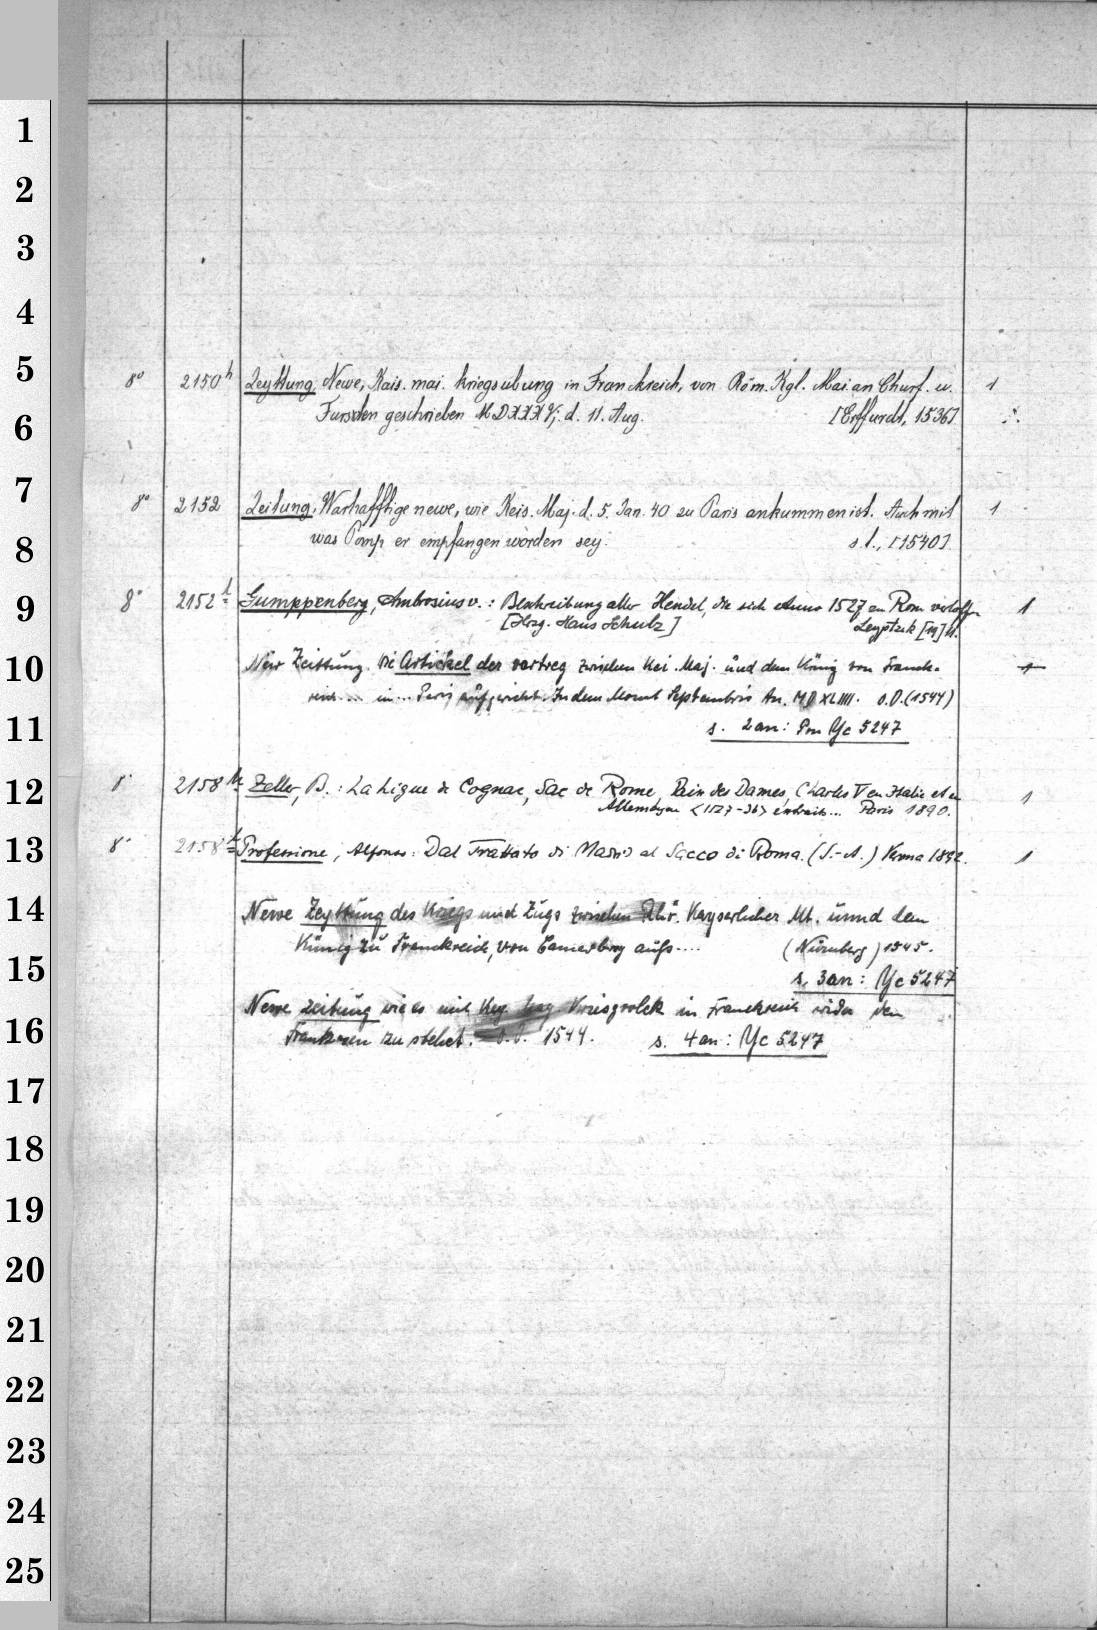 1
2
3
4
5
8° 2150 h Zeyttung, Newe, Kais. mai. kriegsubung in Franckreich, von Röm. Kgl. Mai. an Churf. u. 1
6
Fursten geschrieben MDXXXVj. d. 11. Aug. [Erffurdt, 1536]
7
8° 2152 Zeitung, Warhafftige newe, wie Keis. Maj. d. 5. Jan. 40 zu Paris ankummen ist. Auch mit 1
8
was Pomp er empfangen worden sey. s.l., [1540]
9
8° 2152 Gumppenberg, Ambrosius v.: Beschreibung aller Hendel, die sich Anno 1527 zu Rom verloffen 1
[Hrsg. Hans Schulz] Leyptzck
10
New Zeittung. Die Artickel des vertreg zwischen Kei. Maj. und dem König von Franck-
reich... in... Paris aufgericht. In dem Monat Septembris An. MDXLIIII. o.O. (1544)
11
s. 2 an: Yc 5247
12
8° 2158 Zeller, B.: La Ligue de Cognac, Sac de Rome, Paix des Dames, Charles V en Italie et en 1
Allemagne <1527-36> extraits... Paris 1890.
13
8° 2158 Professione, Alfonso: Dal Trattato di Madrid al Sacco di Roma. (S.-A.) Verona 1892. 1
14
Newe Zeyttung des Kriegs und Zugs zwischen Rhö. Kayserlicher Mt. unnd dem
Künig zu Franckreich, von Camerberg aufs.... (Nürnberg) 1545.
15
s. 3 an: Yc 5247
Newe zeitung wie es mit Key. May. Kriegsvolck in Franckreich wider den
16
Frantzosen zu stehet. o.O. 1544. s. 4 an: Yc 5247
17
18
19
20
21
22
23
24
25